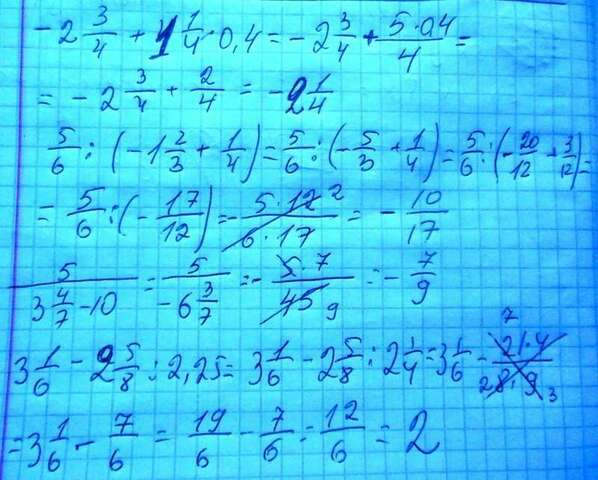 -2 3/4 + 1 1/4 · 0,4 = -2 3/4 + 5·0,4/4 =
= -2 3/4 + 2/4 = -2 1/4
5/6 : (-1 2/3 + 1/4) = 5/6 : (-5/3 + 1/4) = 5/6 : (-20/12 + 3/12) =
= 5/6 : (-17/12) = - 5·12 2/6·17 = - 10/17
5/(3 4/7 - 10) = 5/(-6 3/7) = - 5·7/45 9 = - 7/9
3 1/6 - 2 5/8 : 2,25 = 3 1/6 - 2 5/8 : 2 1/4 = 3 1/6 - 7 21·4/2 8·9 3
= 3 1/6 - 7/6 = 19/6 - 7/6 = 12/6 = 2